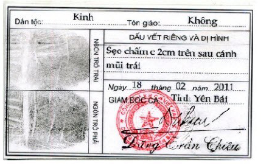 Dân tộc: Kinh Tôn giáo: Không
DẤU VẾT RIÊNG VÀ DỊ HÌNH
Sẹo chấm c 2cm trên sau cánh
mũi trái
Ngày 18 tháng 02 năm 2011
GIÁM ĐỐC CA: Tỉnh Yên Bái
NGÓN TRỎ TRÁI
NGÓN TRỎ PHẢI